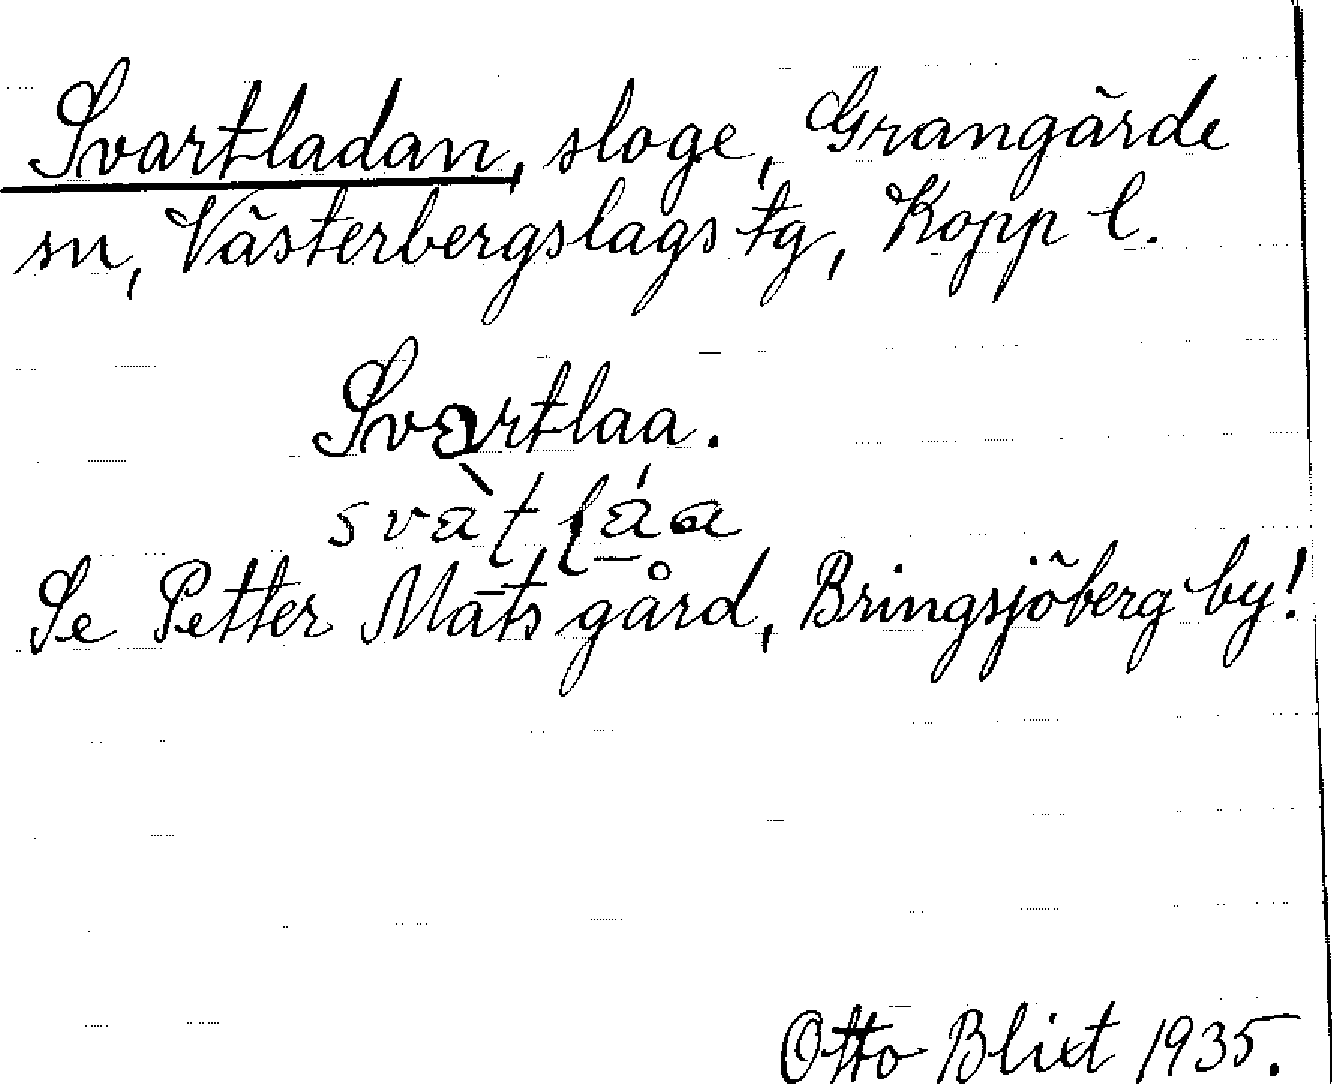 Svartladan, sloge, Grangärde
sn, Västerbergslags tg, Kopp l.
Svartlaa.
Se Petter Mats gård, Bringsjöberg by!
Otto Blixt 1935.